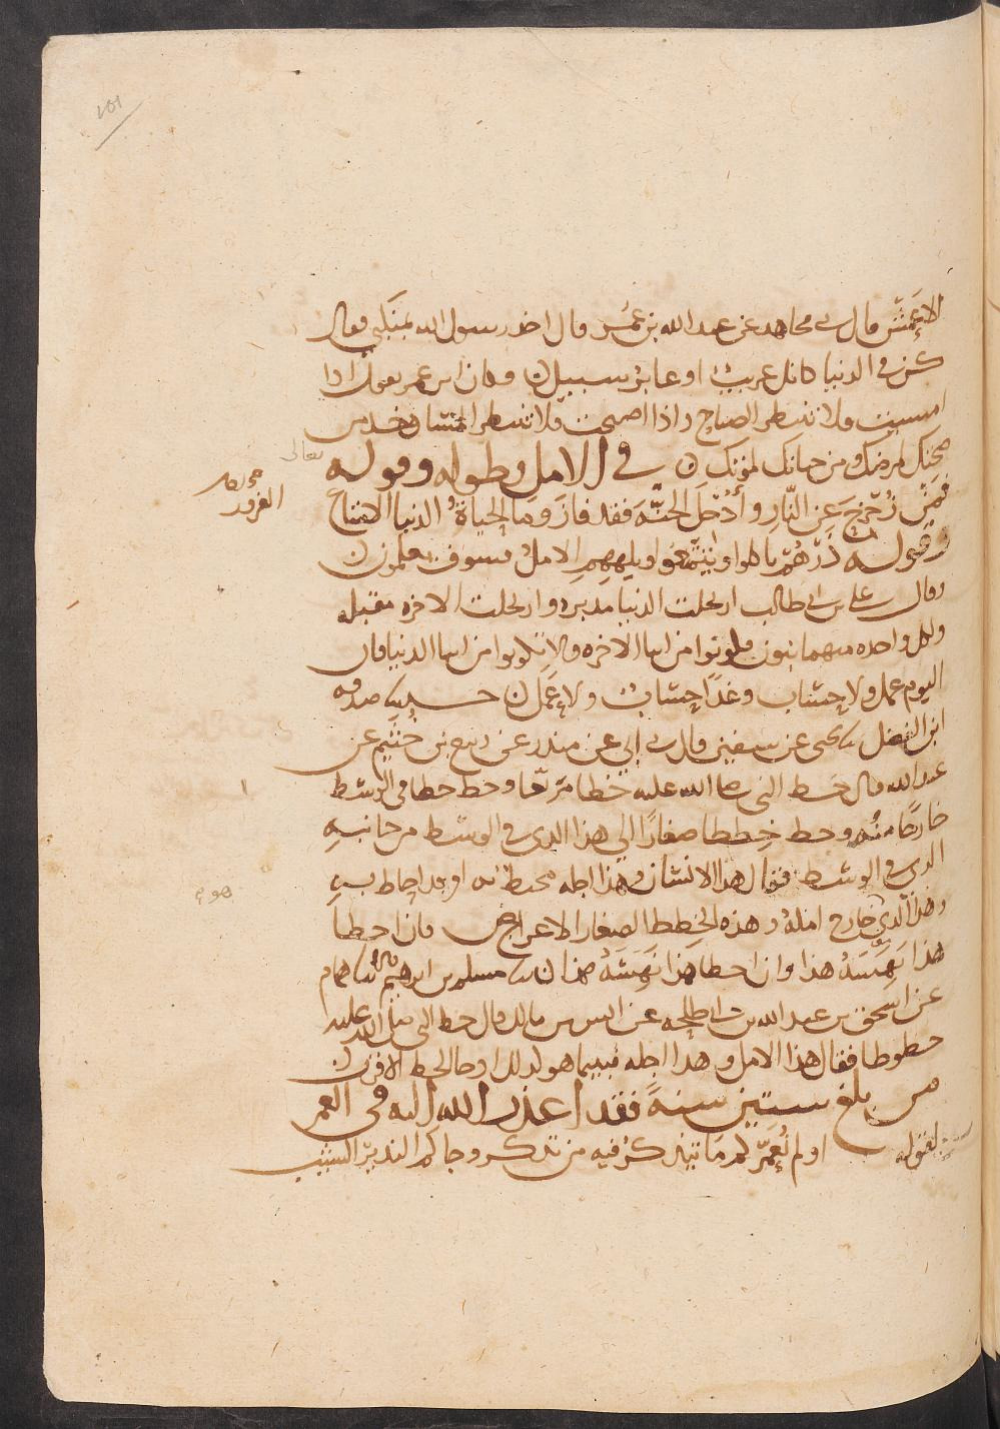 الاعمش قال نى مجاهد عن عبد الله بن عمر قال اخذ رسول الله بمنكبي فقال
كن في الدنيا كانك غريب او عابر سبيل وكان ابن عمر يقول اذا
امسيت فلا تنتظر الصباح واذا اصبحت فلا تنتظر المساء وخذ من
صحتك لمرضك ومن حياتك لموتك في الامل وطوله وقوله تعالى
فمن زُحْزِحَ عَنِ النّارِ وأُدْخِلَ الجنَّةَ فقد فازَ وما الحياةُ الدنيا الا متاع
الغرور
وقوله ذَرْهُمْ ياكلوا ويتمتعوا ويلههم الامل فسوف يعلمون
وقال علي بن ابي طالب ارتحلت الدنيا مدبره وارتحلت الاخره مقبله
ولكل واحده منهما بنون فكونوا من ابنا الاخره ولا تكونوا من ابنا الدنيا فان
اليوم عمل ولا حساب وغدًا حساب ولا عمل صدقه
ابن الفضل يحيى عن سفين قال نى ابي عن منذر عن ربيع بن خثيم عن
عبد الله قال خط النبى صلى الله عليه خطا مربّعا وخط خطا في الوسط
خارجًا منه وخط خططا صغارًا الى هذا الذى في الوسط من جانبه
الذى في الوسط فقال هذا الانسان وهذا اجله محيط به او قد احاط به
وهذا الذي خارج امله وهذه الخطط الصغار الاعراض فان اخطأ
هذا نهشه هذا وان اخطا هذا نهشه هذا مسلم بن ابرهيم همام
عن اسحق بن عبد الله بن ابي طلحه عن انس بن مالك قال خط النبى صلى الله عليه
خطوطا فقال هذا الامل وهذا اجله فبينما هو كذلك اذ جا الخط الاقرب
من بلغ ستين سنةً فقد اعذر الله اليه في العمر
لقوله اولم نُعمّركم ما يتذكر فيه من تذكر وجاكم النذير الشيب